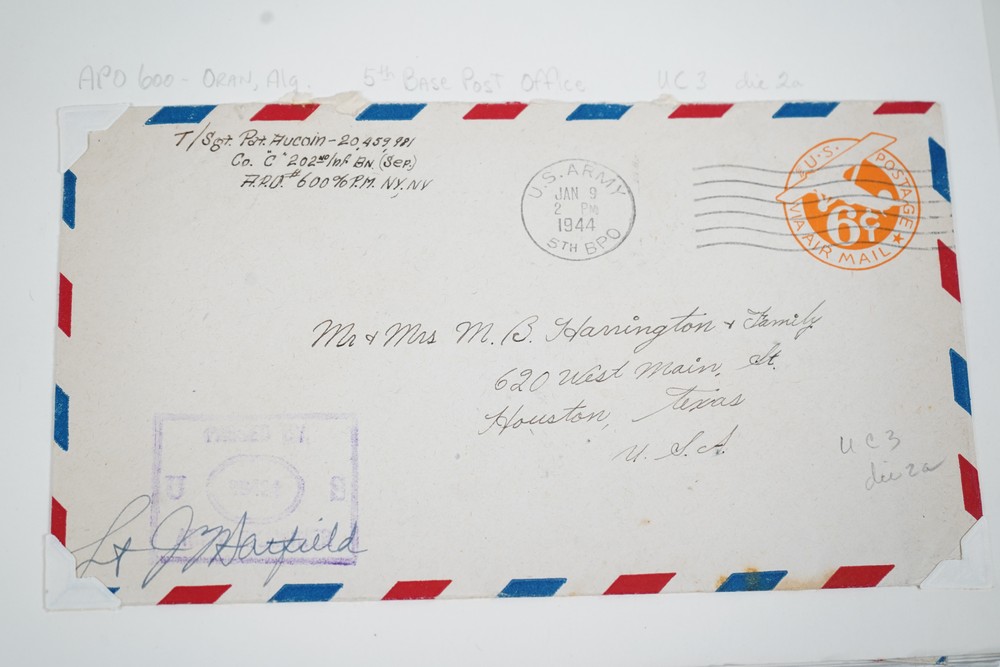 APO 600 - ORAN, Alg. 5th BASE POST OFFICE UC3 die 2a
T/Sgt. Pat. Aucoin - 20,459,981
Co. "C" 202nd Inf BN. (Sep.)
A.P.O. #600 % P.M. NY. NY
U.S. ARMY
JAN 9
2 PM
1944
5TH BPO
U.S. POSTAGE
6¢
VIA AIR MAIL
Mr & Mrs M. B. Harrington & Family
620 West Main, St.
Houston, Texas
U. S. A.
UC3
die 2a
U S
Lt J Hatfield